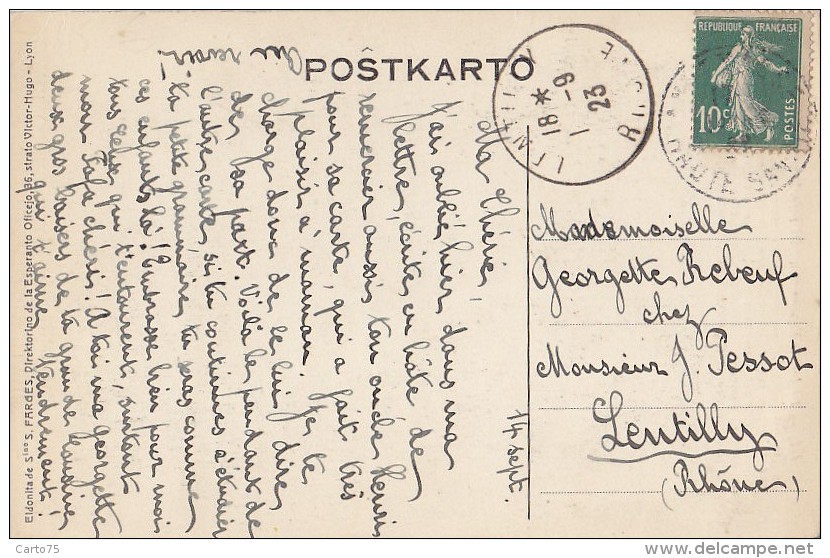 POSTKARTO
Eldonita de S-ino S. FARGES, Direktorino de la Esperanto Oficejo, 36, strato Victor-Hugo - Lyon
REPUBLIQUE FRANÇAISE
10c
POSTES
LENTILLY
18 *
1 -9
23
RHONE
Mademoiselle
Georgette Rebeuf
chez
Monsieur J. Pessot
Lentilly
(Rhône)
14 sept.
Ma Chérie,
J'ai oublié hier dans ma
lettre, écrite en hâte de
remercier aussi ton oncle Henri
pour sa carte, qui a fait très
plaisir à maman. Je te
charge donc de le lui dire
de sa part. Voilà le pendant de
l'autre carte, si tu continues d'étudier
la petite grammaire, tu seras comme
ces enfants là! Embrasse bien pour moi
tous ceux qui t'entourent, surtout
mon chéri! A toi ma Georgette
deux gros baisers de ta grande
qui t'aime tendrement!
Au revoir!
Carto75
delcampe.net